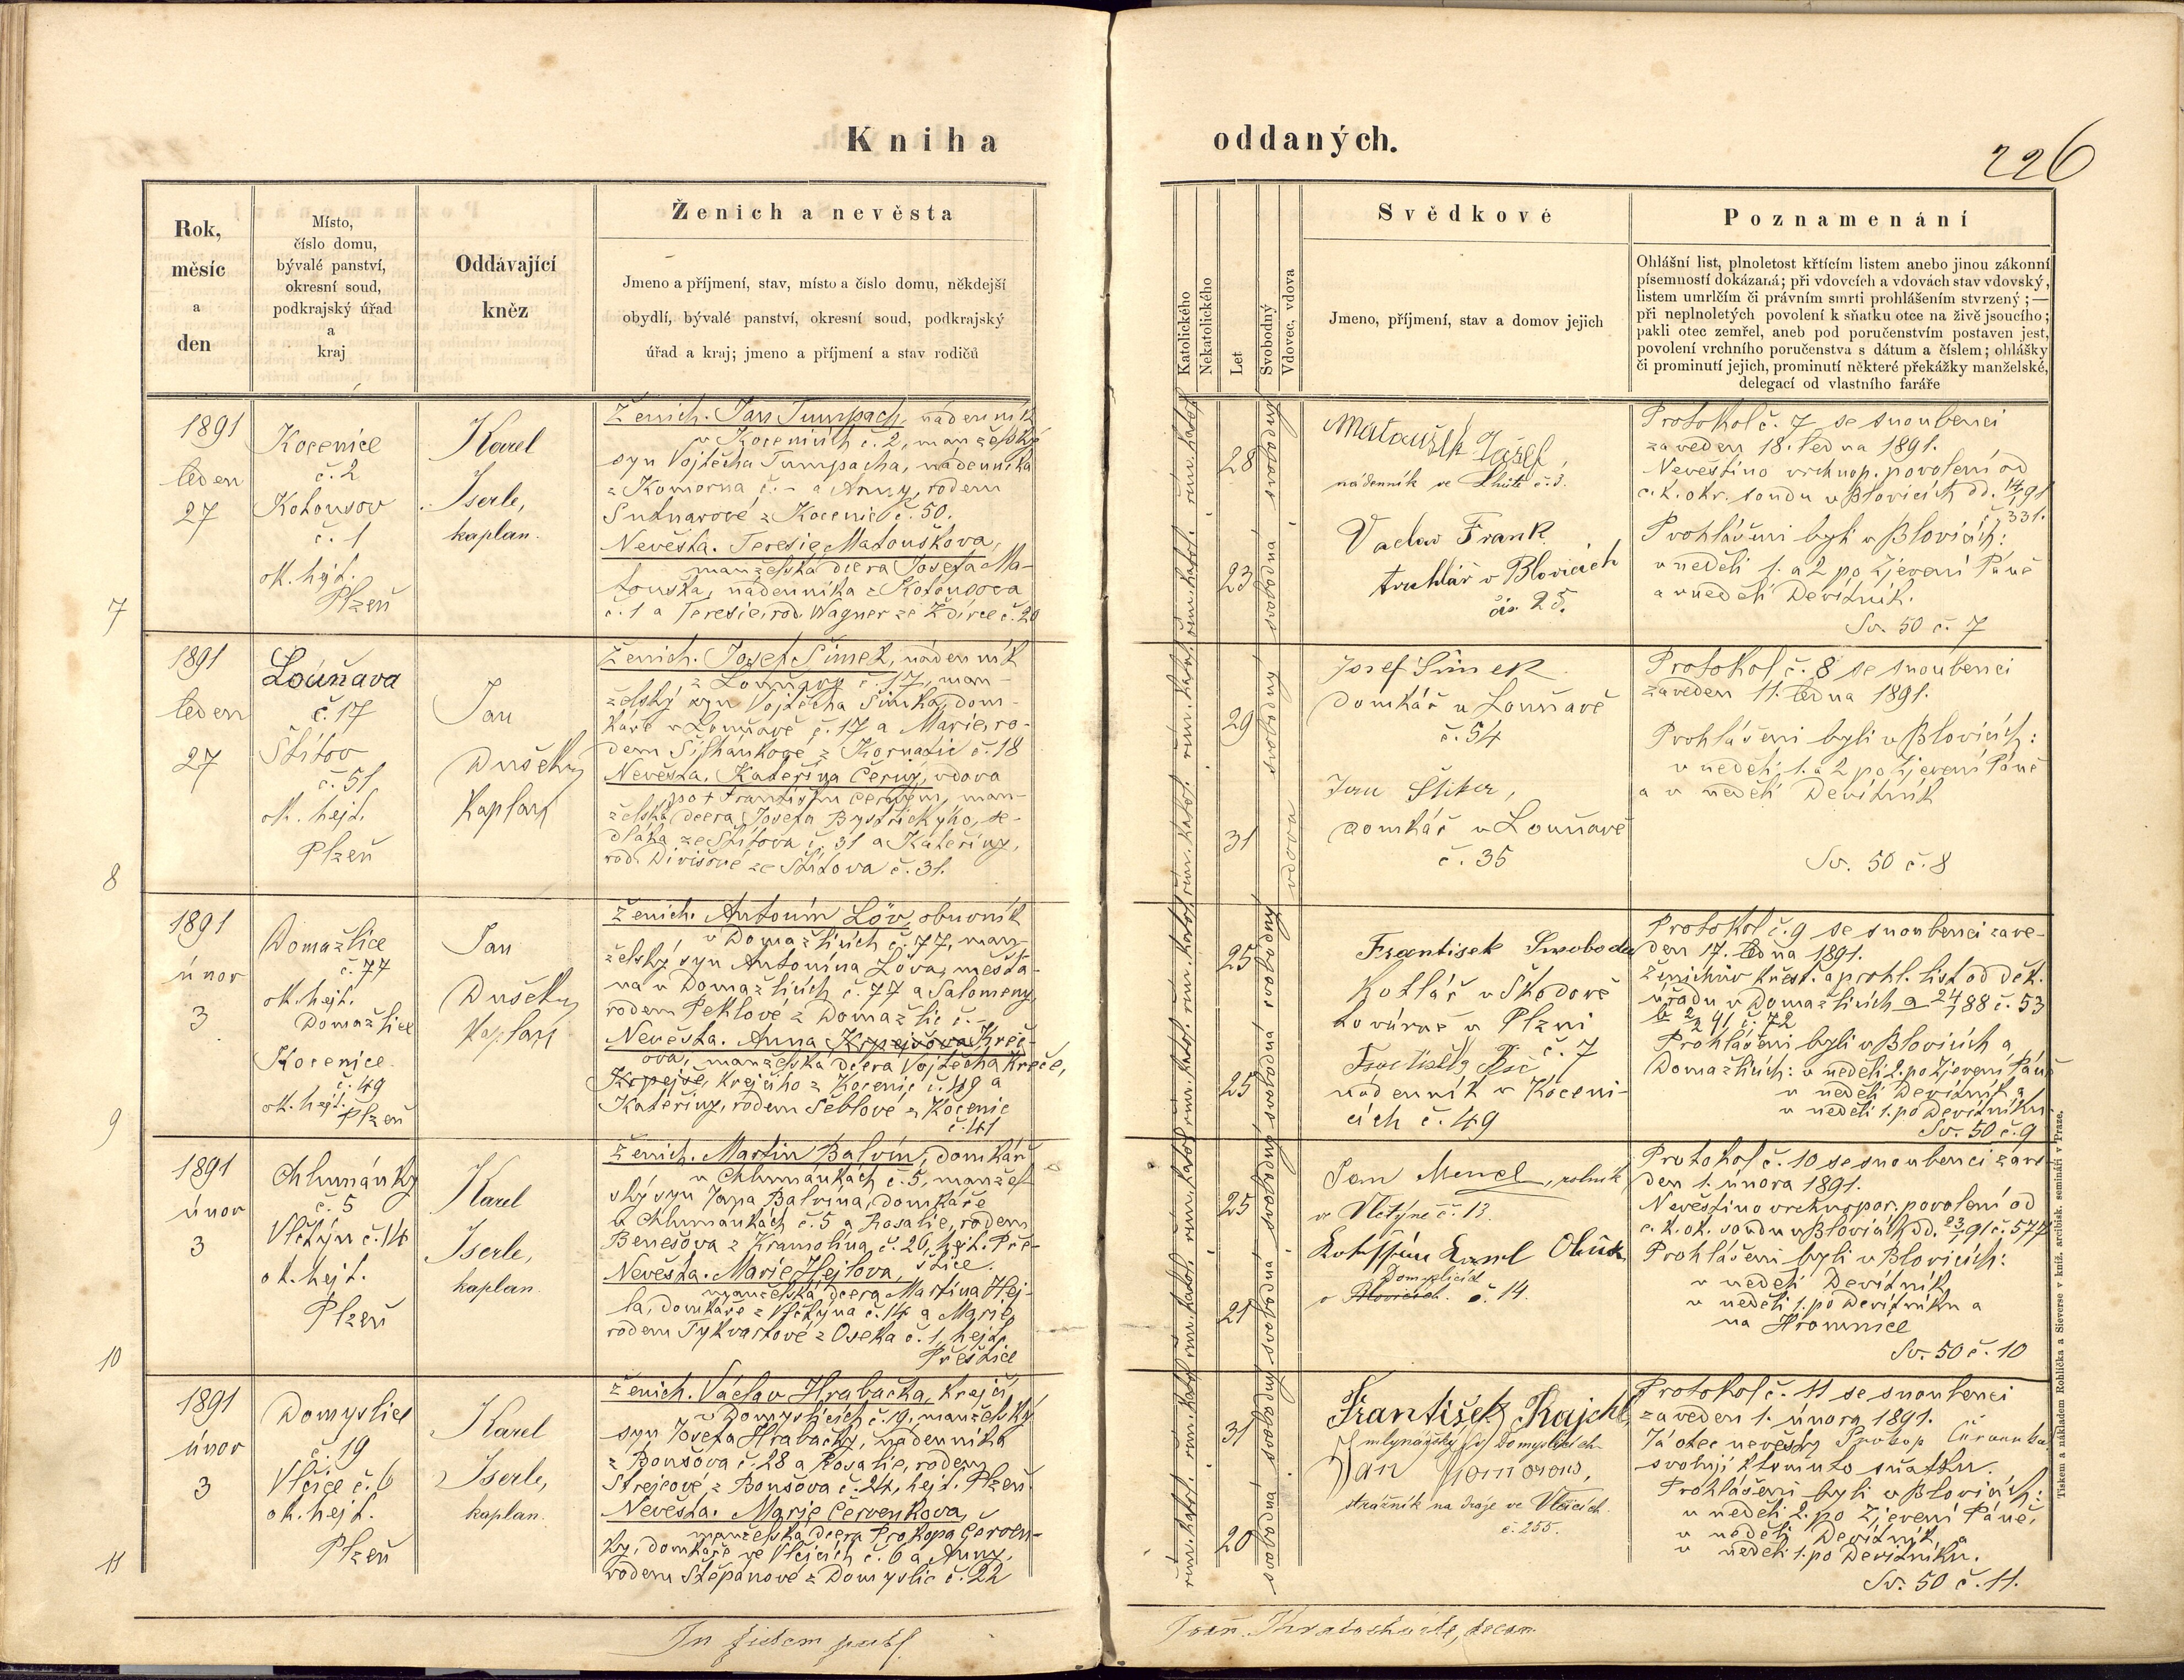 Kniha oddaných.
226
Rok,
měsíc
a
den
Místo,
číslo domu,
bývalé panství,
okresní soud,
podkrajský úřad
a
kraj
Oddávající
kněz
Ženich a nevěsta
Jmeno a příjmení, stav, místo a číslo domu, někdejší
obydlí, bývalé panství, okresní soud, podkrajský
úřad a kraj; jmeno a příjmení a stav rodičů
Katolického
Nekatolického
Let
Svobodný
Vdovec, vdova
Svědkové
Jmeno, příjmení, stav a domov jejich
Poznamenání
Ohlášní list, plnoletost křtícím listem anebo jinou zákonní
písemností dokázaná; při vdovcích a vdovách stav vdovský,
listem umrlčím či právním smrti prohlášením stvrzený ;—
při neplnoletých povolení k sňatku otce na živě jsoucího;
pakli otec zemřel, aneb pod poručenstvím postaven jest,
povolení vrchního poručenstva s dátum a číslem; ohlášky
či prominutí jejich, prominutí některé překážky manželské,
delegací od vlastního faráře
7
1891
leden
27
Kocenice
č. 2
Kotousov
č. 1
ok. hejt.
Plzeň
Karel
Iserle,
kaplan.
Ženich. Jan Tumpach, nádenník
v Kocenicích č. 2, manželský
syn Vojtěcha Tumpacha, nádenníka
z Komorna č. - a Anny, rodem
z Kocenic č. 50.
Nevěsta. Teresie Matouškova,
manželská dcera Josefa Ma-
touška, nádenníka z Kotousova
č. 1 a Teresie, rod. Wagner ze Ždírce č. 20
28
23
svobodný
svobodna
Matoušek Josef,
nádenník ve Lhútě č. 3.
Vaclav Frank
truhlář v Blovicích
čís. 25.
Protokol č. 7 se snoubenci
zaveden 18. ledna 1891.
Nevěstino vrchnop. povolení od
c. k. okr. soudu v Blovicích dd. 14/1 91
č. 331.
Prohlášeni byli v Blovicích:
v neděli 1. a 2 po Zjevení Páně
a v neděli Devítník.
Sv. 50 č. 7
8
1891
leden
27
Louňava
č. 17
Štítov
č. 51
ok. hejt.
Plzeň
Jan
Dušek
Kaplan
Ženich. Josef Šimek, nádenník
z Louňové č. 17, man-
želský syn Vojtěcha Šimka, dom-
káře v Louňavě č. 17 a Marie, ro-
dem z Kornatic č. 18
Nevěsta. Kateřina Černý, vdova
po † Františku Černém, man-
želská dcera Josefa Bystřického, se-
dláka ze Štítova č. 31 a Kateřiny,
rod. Divišové ze Štítova č. 31.
29
31
svobodný
vdova
Josef Šimek
domkář v Louňavě
č. 54
Jan
domkář v Louňavě
č. 35
Protokol č. 8 se snoubenci
zaveden 11. ledna 1891.
Prohlášeni byli v Blovicích:
v neděli 1. a 2 po Zjevení Páně
a v neděli Devítník
Sv. 50 č. 8
9
1891
únor
3
Domažlice
č. 77
ok. hejt.
Domažlice
Kocenice
č. 49
ok. hejt.
Plzeň
Jan
Dušek
Kaplan
Ženich. Antonín Löv, obuvník
v Domažlicích č. 77, man-
želský syn Antonína Löva, měšťa-
na v Domažlicích č. 77 a Salomeny,
rodem Peklové z Domažlic č. -
Nevěsta. Anna Krpejšova Kreč-
ova, manželská dcera Vojtěcha Kreče,
Krpejše, krejčího z Kocenic č. 49 a
Kateřiny, rodem Šeblové z Kocenic
č. 41
25
25
svobodný
svobodna
Frantisek Swoboda
Kotlář v Škodově
továrně v Plzni
č. 7
nádenník v Koceni-
cích č. 49
Protokol č. 9 se snoubenci zave-
den 17. ledna 1891.
Ženichův křest. a prohl. list od děk.
úřadu v Domažlicích a 24/1 88 č. 53
b 2/2 91 č. 72
Prohlášeni byli v Blovicích a
Domažlicích: v neděli 2. po Zjevení Páně
v neděli Devítník a
v neděli 1. po Devítníku.
Sv. 50 č. 9
10
1891
únor
3
Chlumánky
č. 5
Vlčtýn č. 14
ok. hejt.
Plzeň
Karel
Iserle,
kaplan.
Ženich. Martin Balvín, domkář
v Chlumánkách č. 5, manžel-
ský syn Jana Balvína, domkáře
v Chlumánkách č. 5 a Rosalie, rodem
Benešova z Kramolína č. 26, hejt. Pře-
štice.
Nevěsta. Marie Hejlova,
manželská dcera Martina Hej-
la, domkáře z Vlčtýna č. 14 a Marie,
rodem Tykvartové z Oseka č. 1, hejt.
Přeštice
25
21
svobodný
svobodna
Jan Menel, rolník
ve Vlčtýně č. 13.
v Blovicích Domyslicích č. 14.
Protokol č. 10 se snoubenci zave-
den 1. února 1891.
Nevěstino vrchnopor. povolení od
c. k. ok. soudu v Blovicích dd. 23/1 91 č. 577
Prohlášeni byli v Blovicích:
v neděli Devítník,
v neděli 1. po Devítníku a
na Hromnice
Sv. 50 č. 10
11
1891
únor
3
Domyslice
č. 19
Vlčice č. 6
ok. hejt.
Plzeň
Karel
Iserle,
kaplan.
Ženich. Václav Hrabačka, krejčí
v Domyslicích č. 19, manželský
syn Josefa Hrabačky, nádenníka
z Boušova č. 28 a Rosalie, rodem
Strejcové z Boušova č. 24, hejt. Plzeň.
Nevěsta. Marie Červenkova,
manželská dcera Prokopa Červen-
ky, domkáře ve Vlčicích č. 6 a Anny,
rodem Štěpánové z Domyslic č. 22
31
20
svobodný
svobodna
František Rajchl,
mlynářský Domyslicích
Jan Komorous,
strážník na dráze ve Vlčicích.
č. 255.
Protokol č. 11 se snoubenci
zaveden 1. února 1891.
Já otec nevěsty Prokop Červenka
svoluji k tomuto sňatku.
Prohlášeni byli v Blovicích:
v neděli 2. po Zjevení Páně,
v neděli Devítník, a
v neděli 1. po Devítníku.
Sv. 50 č. 11.
Tiskem a nákladem Rohlíčka a Sieverse v kníž. arcibisk. semináři v Praze.
In fidem publ.